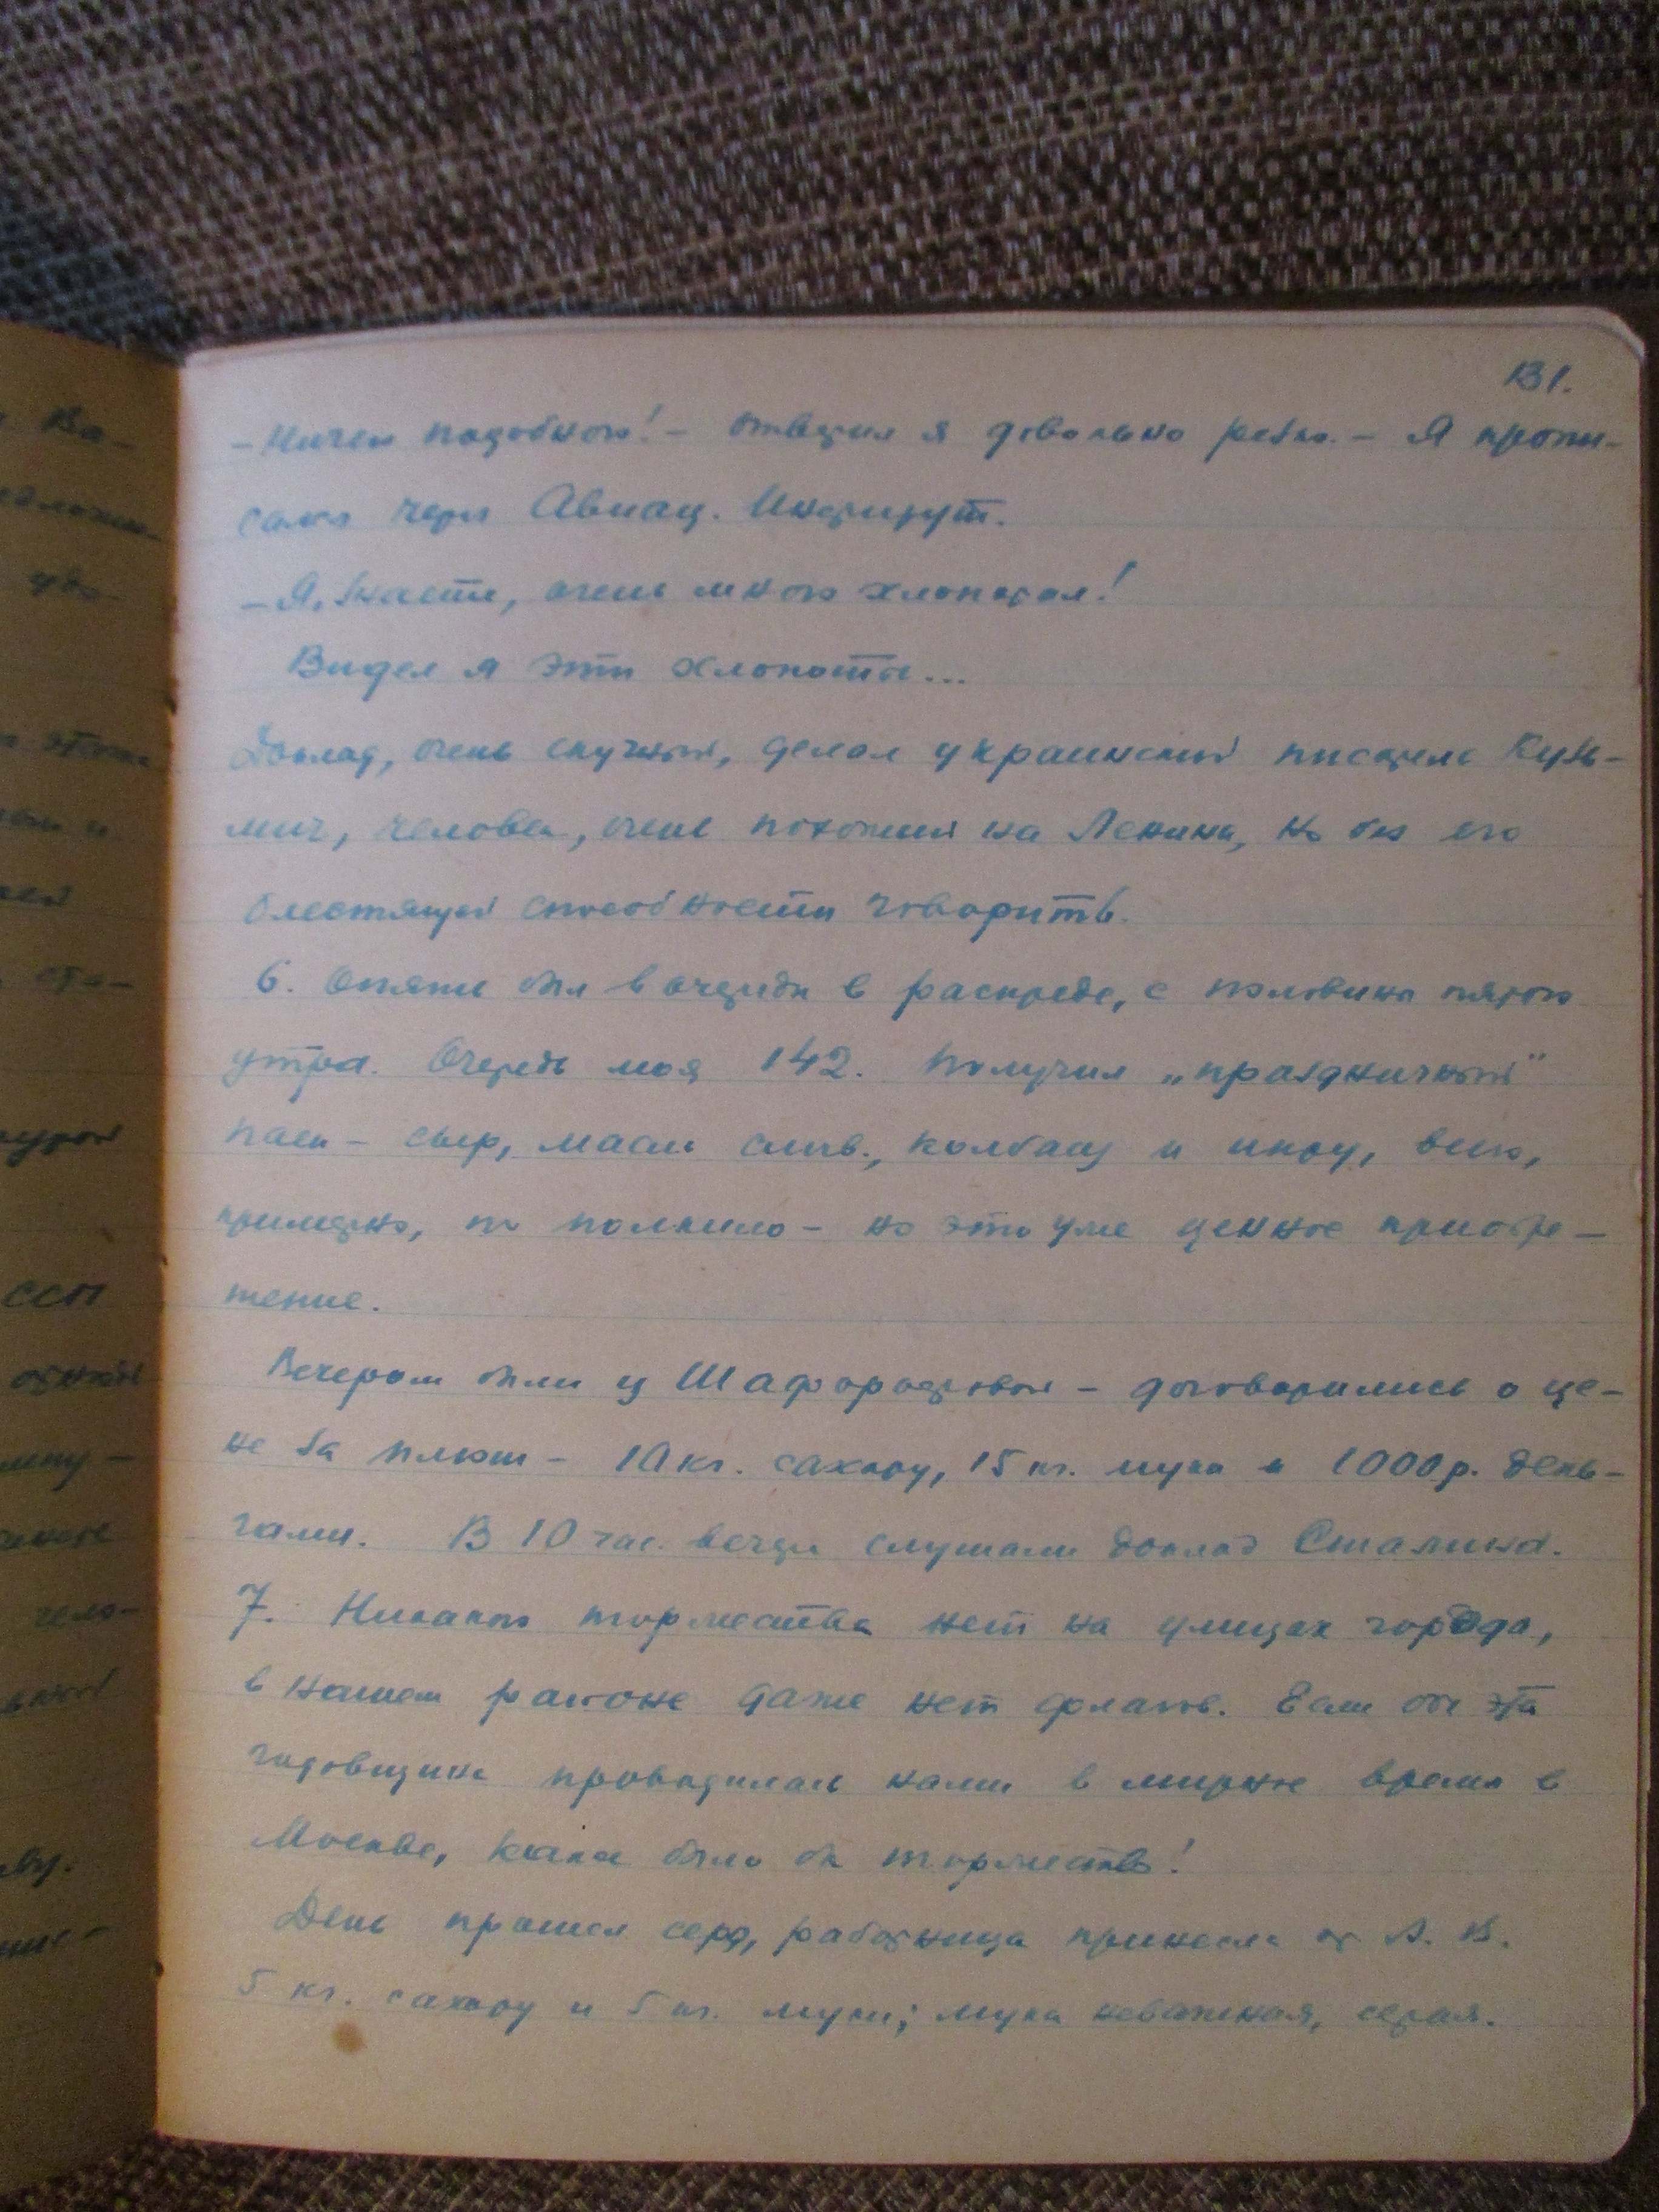 131.
– Ничего подобного! – ответил я довольно резко. – Я пропи-
сался через Авиац. Институт.
– Я, знаете, очень много хлопотал!
Видел я эти хлопоты...
Доклад, очень скучный, делал украинский писатель Кузь-
мич, человек, очень похожий на Ленина, но без его
блестящей способности говорить.
6. Опять был в очереди в распреде, с половины пятого
утра. Очередь моя 142. Получил „праздничный"
паек – сыр, масло слив., колбасу и икру, всего,
примерно, по полкило – но это уже ценное приобре-
тение.
Вечером были у Шафаростовой – договорились о це-
не за плюш – 10 кг. сахару, 15 кг. муки и 1000 р. день-
гами. В 10 час. вечера слушали доклад Сталина.
7. Никакого торжества нет на улицах города,
в нашем районе даже нет флагов. Если бы эта
годовщина проводилась нами в мирное время в
Москве, какое было бы торжество!
День прошел серо, работница принесла от А. В.
5 кг. сахару и 5 кг. муки; мука неважная, серая.
Ва-
удо-
ста-
ССП
чело-